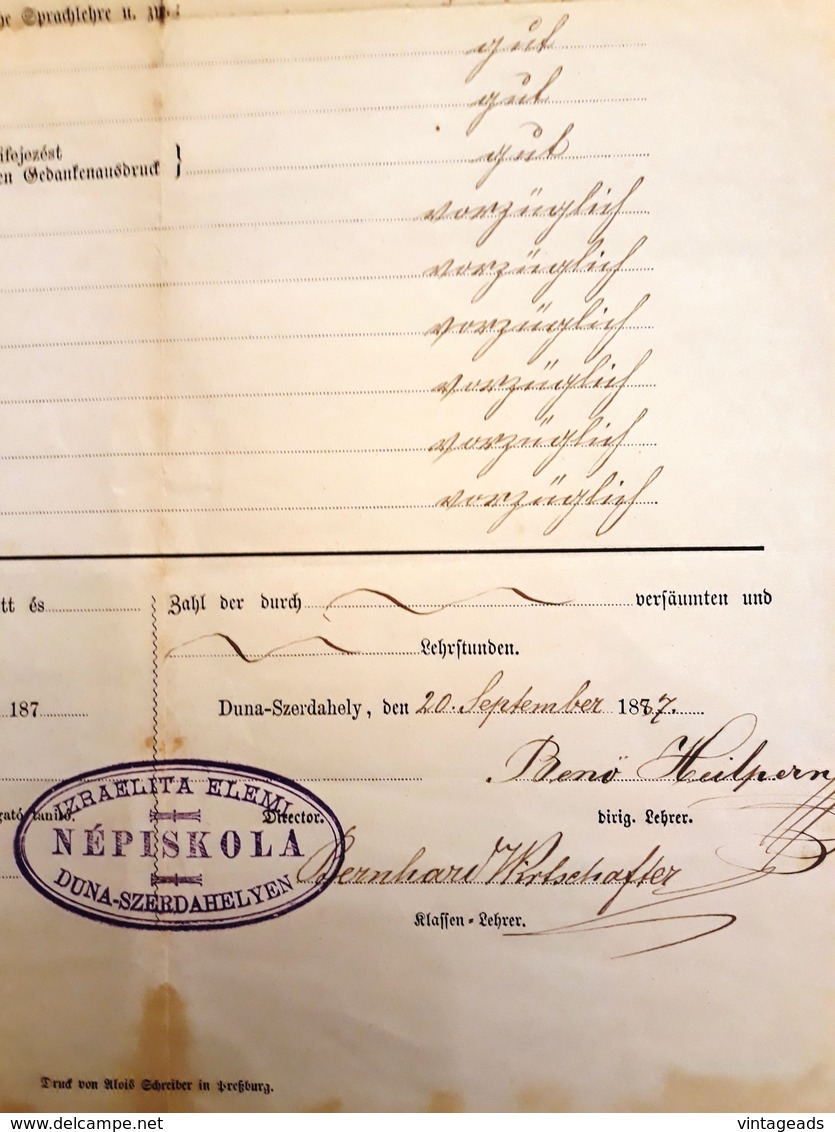 he Sprachlehre u. zw.:
gut
gut
ifejezést
en Gedankenausdruck } gut
vorzüglich
vorzüglich
vorzüglich
vorzüglich
vorzüglich
vorzüglich
tt és
Zahl der durch versäumten und
Lehrstunden.
187
Duna-Szerdahely, den 20. September 1887.
Benö Heilpern
gató tanító.
Director.
dirig. Lehrer.
IZRAELITA ELEMI
NÉPISKOLA
DUNA-SZERDAHELYEN
Bernhard Wirtschafter
Klassen-Lehrer.
Druck von Alois Schreiber in Preßburg.
delcampe.net
vintageads